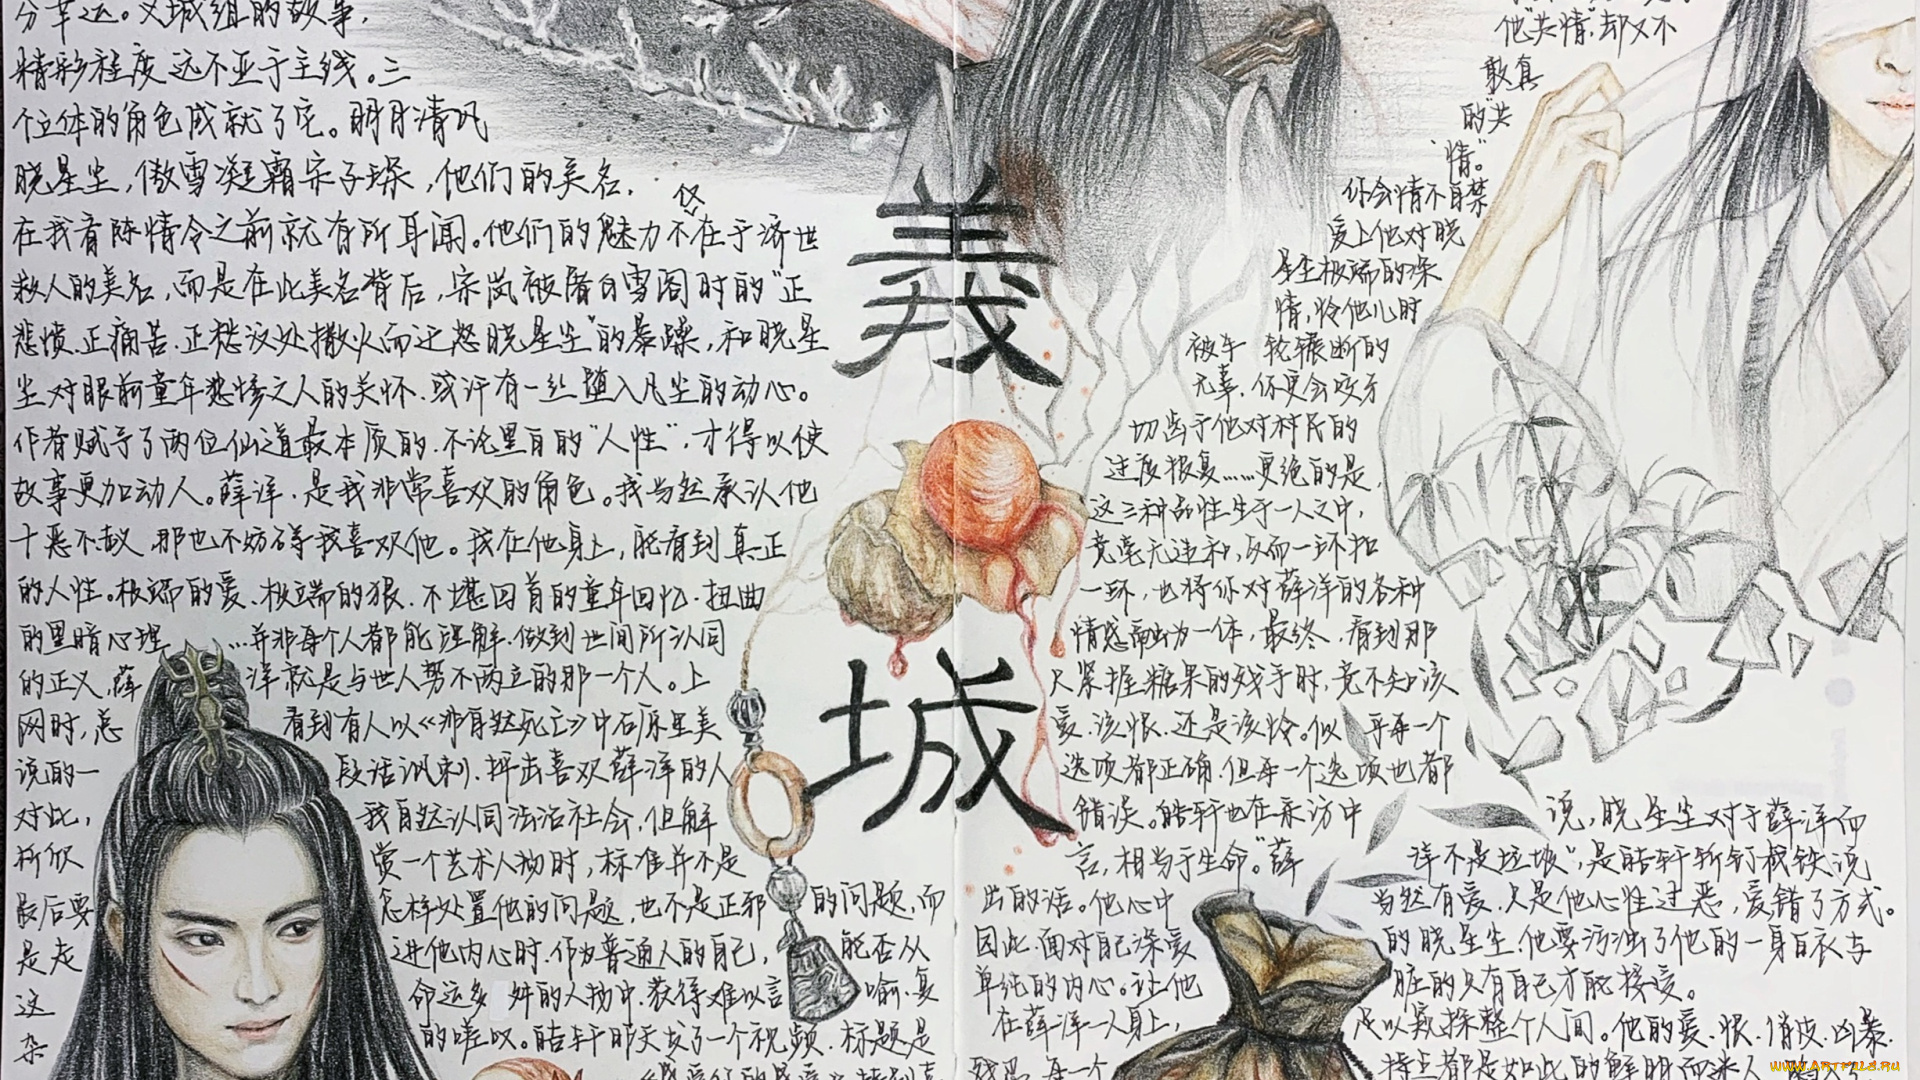 分幸运。义城组的故事,
精彩程度远不亚于主线。三
个立体的角色成就了它。明月清风
晓星尘,傲雪凌霜宋子琛,他们的美名,
在我看陈情令之前就有所耳闻。他们的魅力不在于济世
救人的美名,而是在此美名背后,宋岚被屠白雪阁时的"正
悲愤.正痛苦.正愁没处撒火而迁怒晓星尘"的暴躁,和晓星
尘对眼前童年悲惨之人的关怀.或许有一丝堕入凡尘的动心。
作者赋予了两位仙道最本质的.不论黑白的"人性",才得以使
故事更加动人。薛洋.是我非常喜欢的角色。我当然承认他
十恶不赦.那也不妨碍我喜欢他。我在他身上,能看到真正
的人性。极端的爱.极端的狠.不堪回首的童年回忆.扭曲
的黑暗心理......并非每个人都能理解.做到世间所认同
的正义,薛洋就是与世人势不两立的那一个人。上
网时,总看到有人以《非自然死亡》中石原里美
说的一段话讽刺.抨击喜欢薛洋的人
对此,我自然认同法治社会,但解
析欣赏一个艺术人物时,标准并不是
最后要怎样处置他的问题,也不是正邪的问题,而
是走进他内心时.作为普通人的自己,能否从
这命运多舛的人物中.获得难以言喻.复
杂的嗟叹。皓轩昨天发了一个视频.标题是
義
城
他"共情",却又不
敢真
的"共
情"。
你会情不自禁
爱上他对晓
星尘极端的深
情,怜他儿时
被车轮辗断的
无辜.你更会咬牙
切齿于他对村民的
过度报复......更绝的是,
这三种品性生于一人之中,
竟毫无违和,反而一环扣
一环,也将你对薛洋的各种
情感融为一体,最终.看到那
只紧握糖果的残手时,竟不知该
爱.该恨.还是该怜。似乎每一个
选项都正确.但每一个选项也都
错误。皓轩也在采访中说,晓星尘对于薛洋而
言,相当于生命。"薛洋不是垃圾",是皓轩斩钉截铁说
出的话。他心中当然有爱.只是他心性过恶,爱错了方式。
因此.面对自己深爱的晓星尘.他要污浊了他的一身白衣与
单纯的内心。让他脏的只有自己才能接受。
在薛洋一人身上,足以窥探整个人间。他的爱.恨.俏皮.凶暴.
WWW.ARTFILE.RU